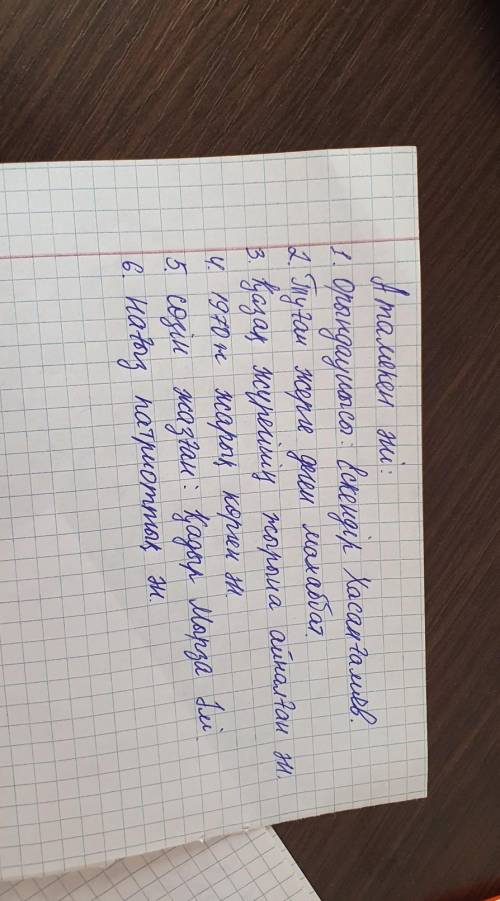 Атамекен әні:
1. Орындаушысы: Ескендір Хасанғалиев.
2. Туған жерге деген махаббат.
3. Қазақ жүрегінің жырына айналған ән.
4. 1970 ж жарық көрген ән
5. сөзін жазған: Қадыр Мырза Әлі.
6. Нағыз патриоттық ән.